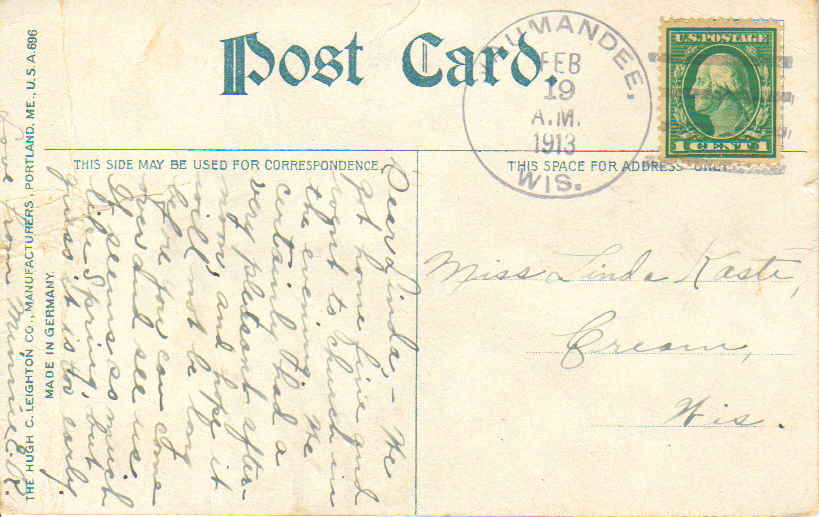 Post Card.
UMANDEE,
FEB
19
A.M.
1913
WIS.
U.S. POSTAGE
1 CENT 1
THIS SIDE MAY BE USED FOR CORRESPONDENCE.
THIS SPACE FOR ADDRESS ONLY.
Dear Linda, - We
got home fine and
went to church in
the evening. We
certainly had a
very pleasant after-
noon and hope it
will not be long
before you can come
over and see us.
It seems so much
like Spring, but
guess it is too early.
Love from Minnie K.
Miss Linda Kaste,
Cream,
Wis.
THE HUGH C. LEIGHTON CO., MANUFACTURERS, PORTLAND, ME., U.S.A. 696
MADE IN GERMANY.